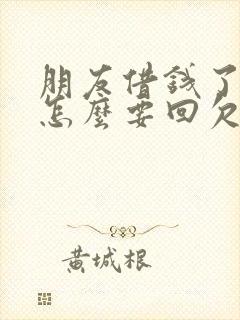 朋友借錢了
怎麼要回欠
黃城根